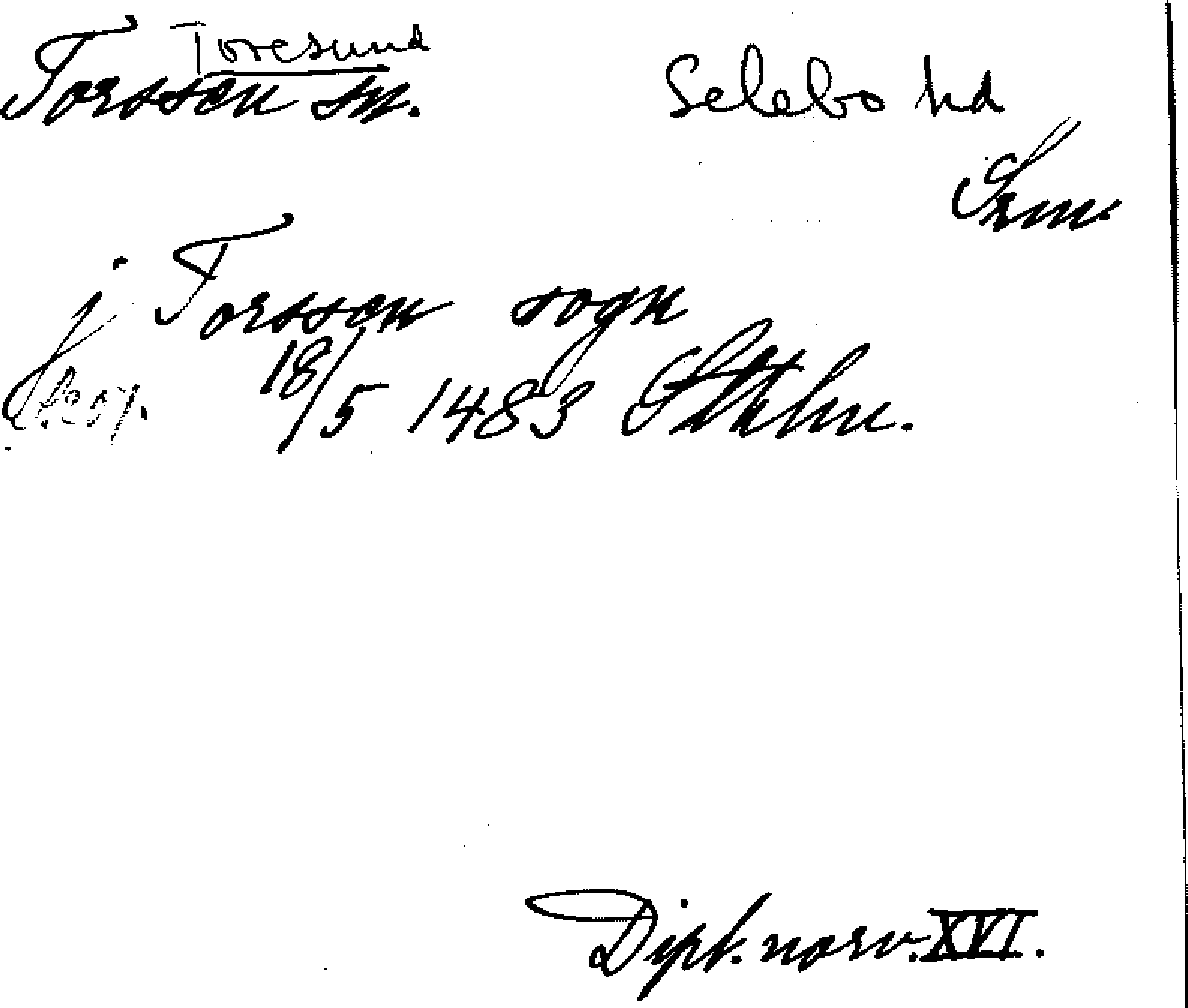 Toresund
Torssen sn. Selebo hd
Srm.
j Torssen sogn
18/5 1483 Stkhn.
Dipl. norv. XVI.